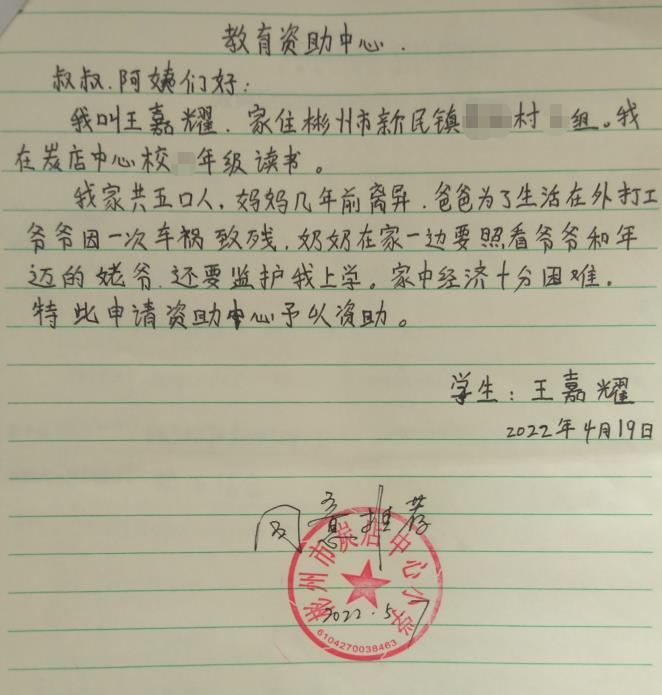 教育资助中心.
叔叔.阿姨们好:
我叫王嘉耀.家住彬州市新民镇村组。我
在炭店中心校年级读书。
我家共五口人,妈妈几年前离异.爸爸为了生活在外打工
爷爷因一次车祸致残.奶奶在家一边要照看爷爷和年
迈的姥爷.还要监护我上学。家中经济十分困难。
特此申请资助中心予以资助。
学生:王嘉耀
2022年4月19日
同意推荐
彬州市炭店中心小学
2022.5.7
6104270038463